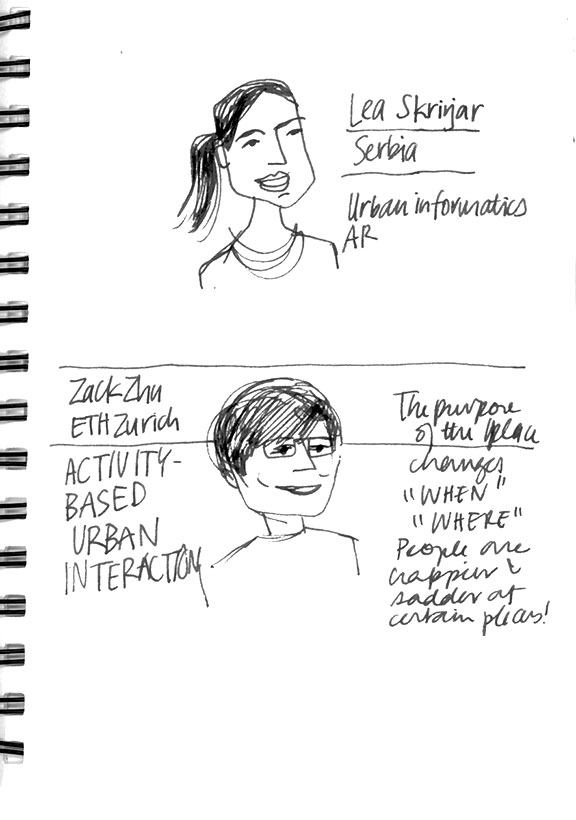 Lea Skrinjar
Serbia
Urban informatics
AR
Zack Zhu
ETH Zurich
ACTIVITY-
BASED
URBAN
INTERACTION
The purpose
of the place
changes
"WHEN"
"WHERE"
People are
happier &
sadder at
certain places!